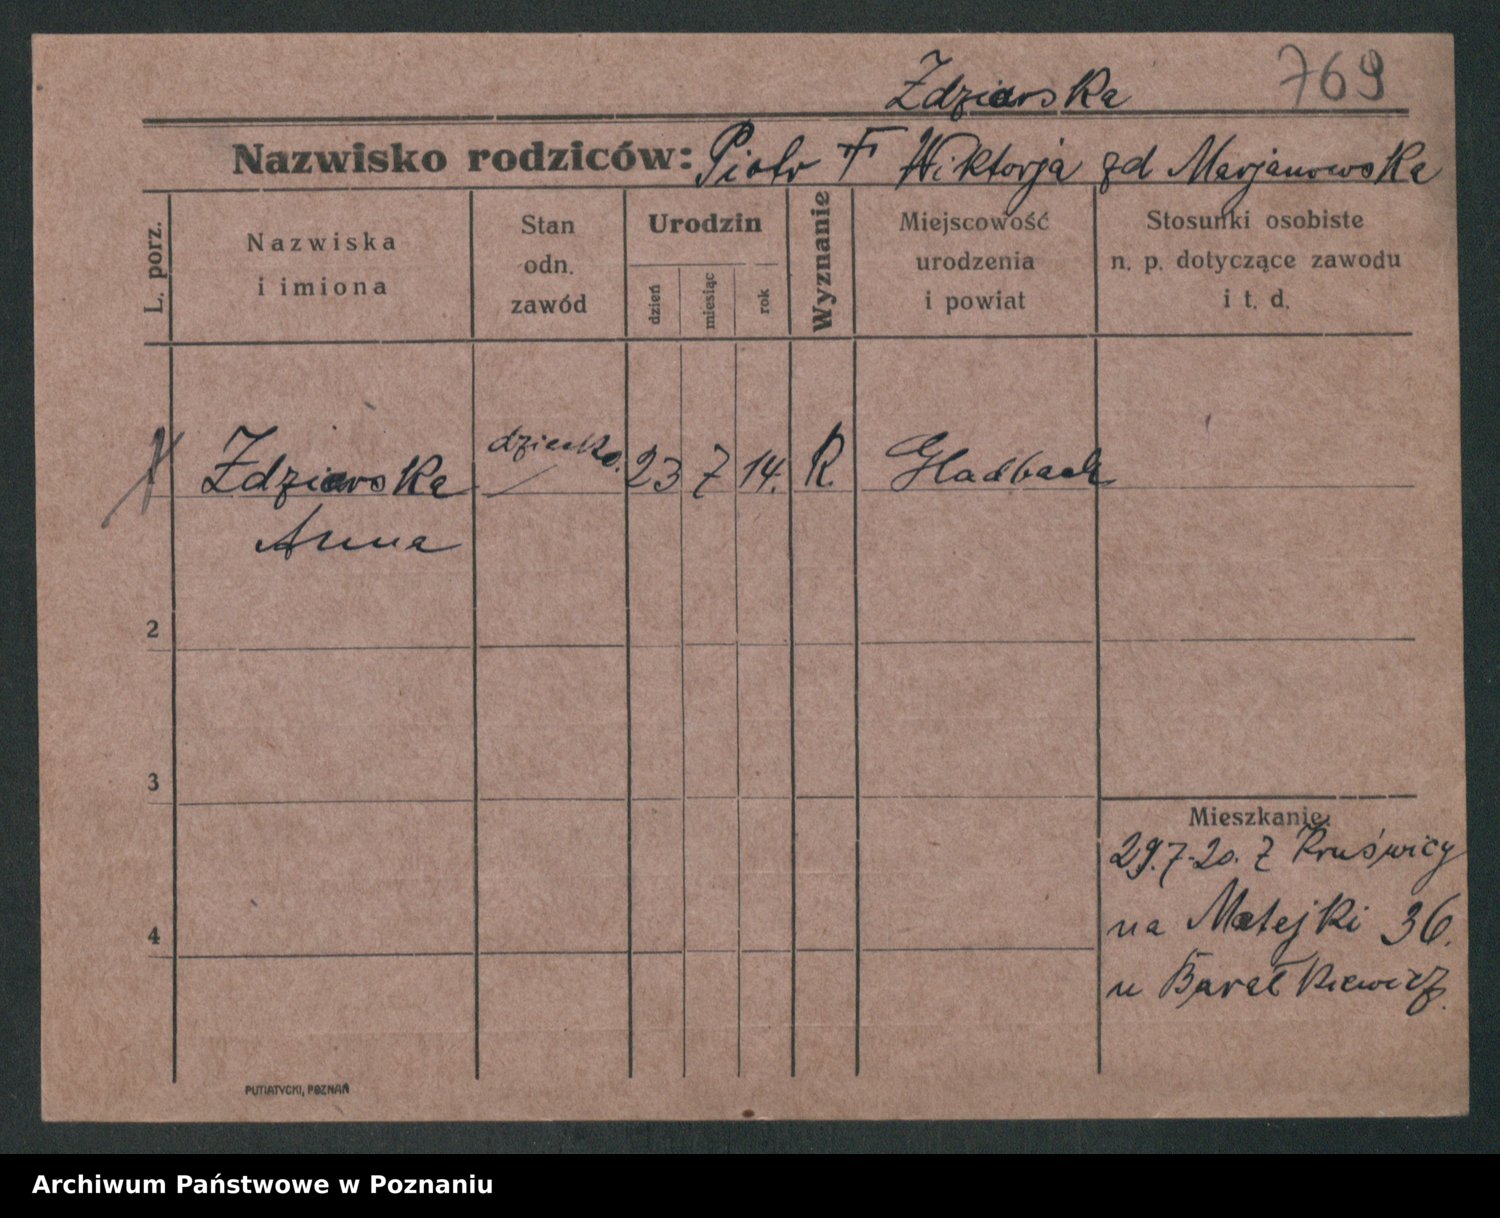 Zdziarska 769
Nazwisko rodziców: Piotr Wiktorja zd Marjanowska
L. porz.
Nazwiska
i imiona
Stan
odn.
zawód
Urodzin
dzień
miesiąc
rok
Wyznanie
Miejscowość
urodzenia
i powiat
Stosunki osobiste
n. p. dotyczące zawodu
i t. d.
Zdziarska dziecko. 23 7 14. R. Gladbach
Anna
2
3
Mieszkanie:
29.7.20. z Kruświcy
na Matejki 36.
4
u Barałkiewicz.
PUTIATYCKI, POZNAŃ
Archiwum Państwowe w Poznaniu